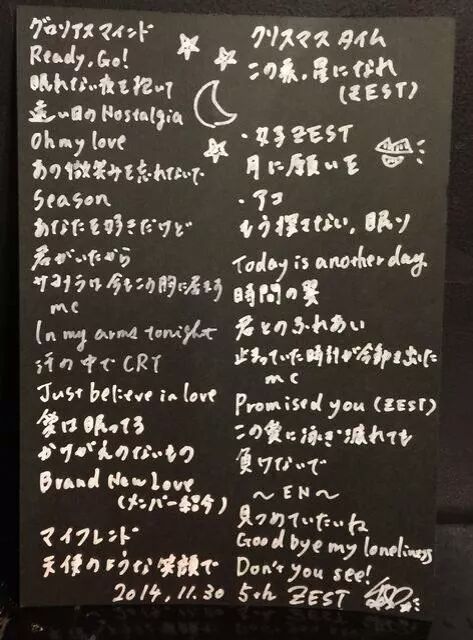 グロリアス マインド
Ready, Go!
眠れない夜を抱いて
遠い日のNostalgia
Oh my love
あの微笑みを忘れないで
Season
あなたを好きだけど
君がいたから
サヨナラは今もこの胸に居ます
mc
In my arms tonight
汗の中でCRY
Just believe in love
愛は眠ってる
かけがえのないもの
Brand New Love
(メンバー紹介)
マイ フレンド
天使のような笑顔で
クリスマス タイム
この素、星になれ
(ZEST)
・女子ZEST
月に願いを
・アコ
もう探さない, 眠り
Today is another day
時間の翼
君とのふれあい
止まっていた時計が今動き出した
mc
Promised you (ZEST)
この愛に泳ぎ疲れても
負けないで
〜EN〜
見つめていたいね
Good bye my loneliness
Don't you see!
2014.11.30 5th ZEST